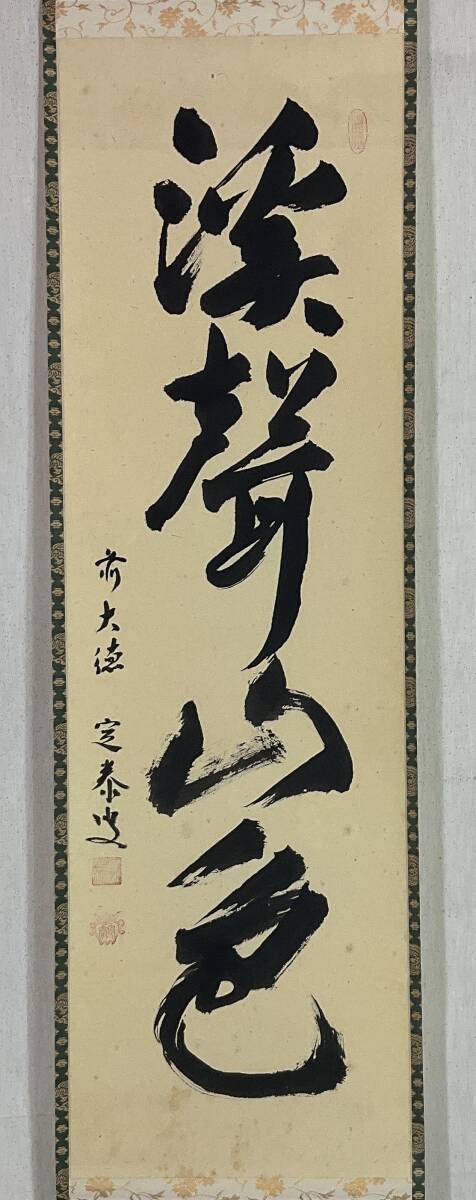 溪聲山色
前大徳 定泰叟